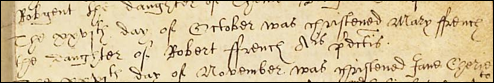 the daughter of
The xxvith day of October was christened Mary ffrench
the daughter of Robert ffrench Ano pdictis.
day of November was christened Jane